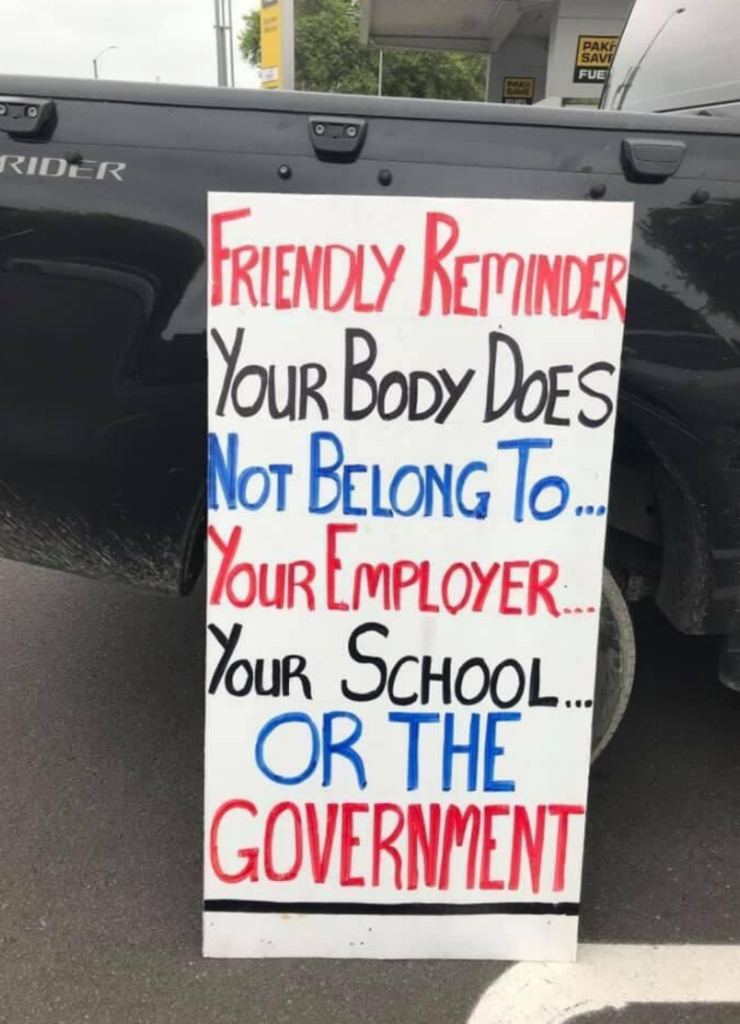 PAK
SAVE
FUE
RIDER
FRIENDLY REMINDER
YOUR BODY DOES
NOT BELONG TO...
YOUR EMPLOYER...
YOUR SCHOOL...
OR THE
GOVERNMENT